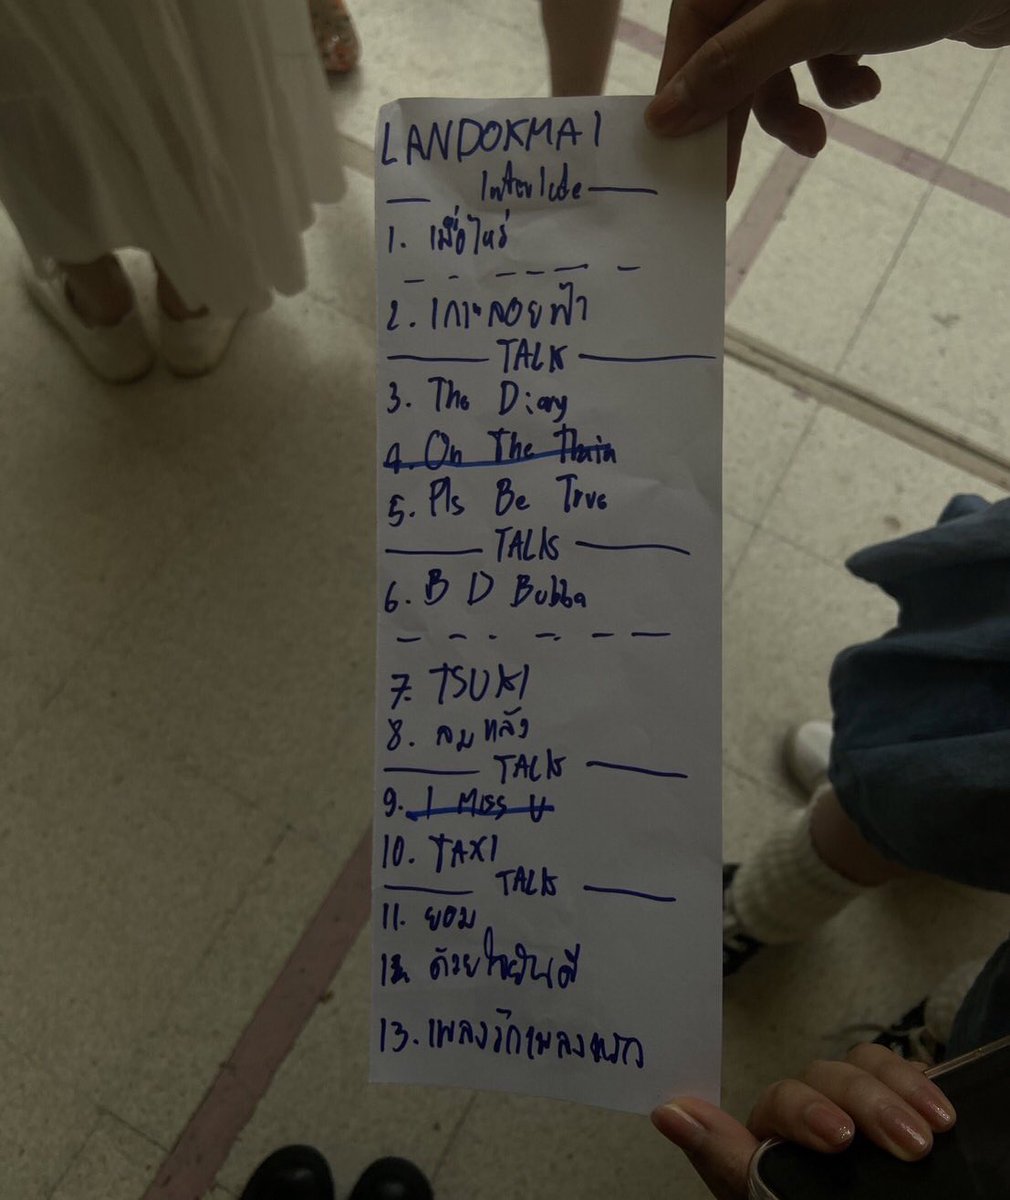 LANDOKMAI
Interlude
1. เมื่อไหร่
2. เกาะลอยฟ้า
TALK
3. The Diary
4. On The Train
5. Pls Be True
TALK
6. B D Bubba
7. TSUKI
8. ลมหลัง
TALK
9. I Miss U
10. TAXI
TALK
11. ยอม
12. ด้วยใจยินดี
13. เพลงรักเพลงแรก